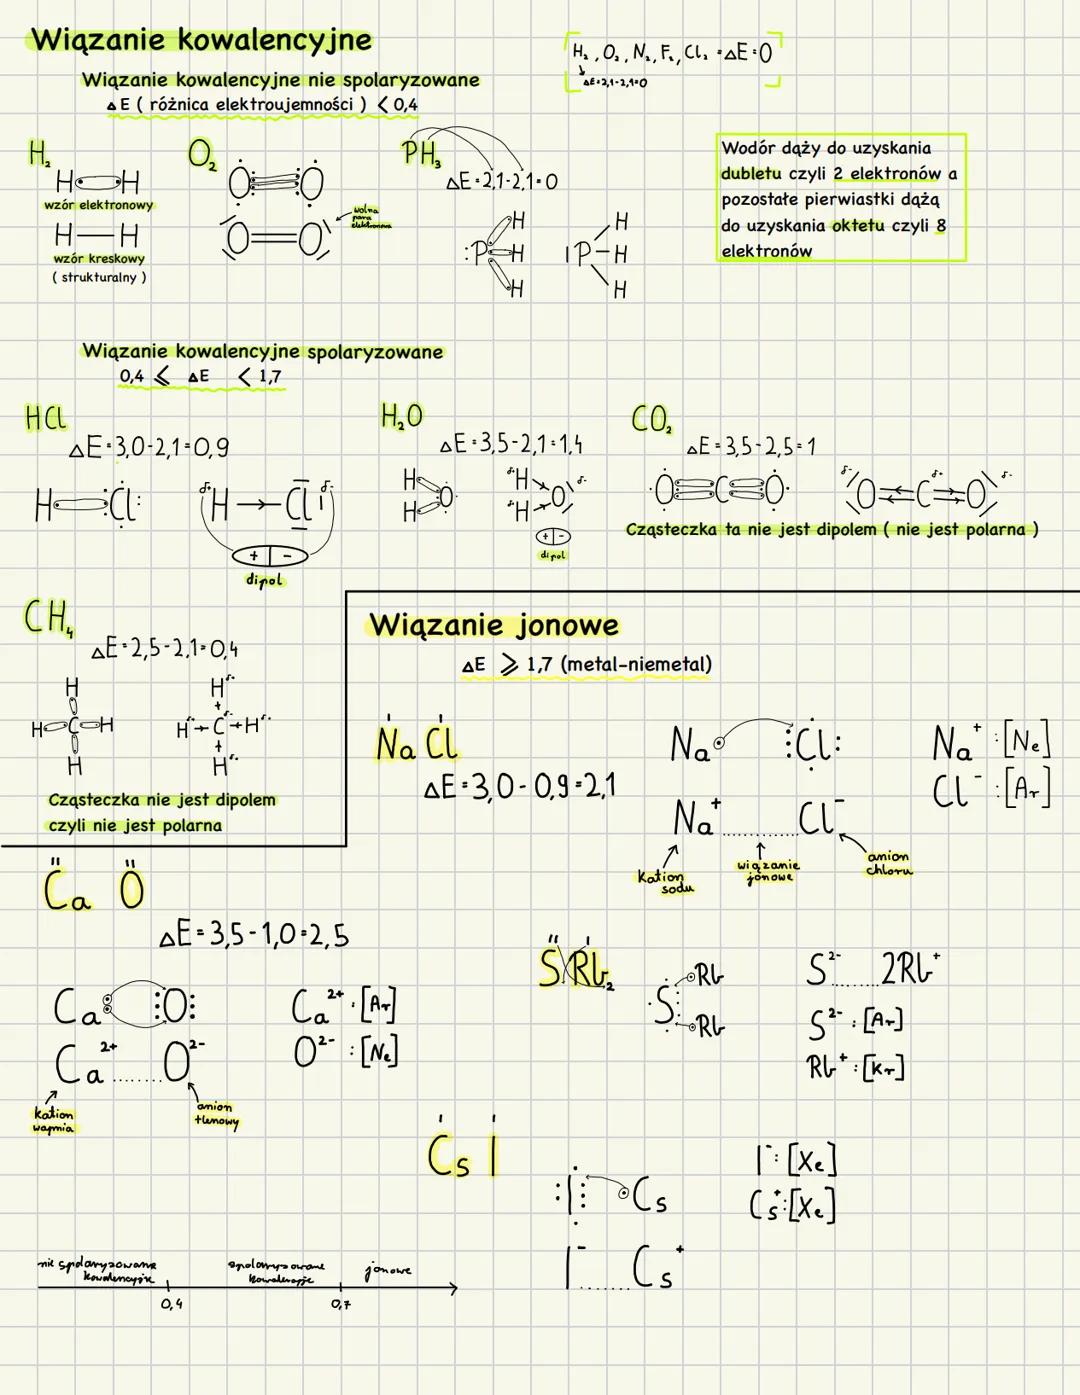 Wiązanie kowalencyjne
H₂, O₂, N₂, F₂, Cl₂ = ΔE=0
ΔE=2,1-2,1=0
Wiązanie kowalencyjne nie spolaryzowane
ΔE ( różnica elektroujemności ) < 0,4
H₂
H H
wzór elektronowy
H — H
wzór kreskowy
( strukturalny )
O₂
O O
O=O
wolna para elektronowa
PH₃
ΔE=2,1-2,1=0
:P H H H
IP-H H H
Wodór dąży do uzyskania
dubletu czyli 2 elektronów a
pozostałe pierwiastki dążą
do uzyskania oktetu czyli 8
elektronów
Wiązanie kowalencyjne spolaryzowane
0,4 ⩽ ΔE < 1,7
HCl
ΔE=3,0-2,1=0,9
H Cl:
δ+ H → Cl δ-
+ | -
dipol
H₂O
ΔE=3,5-2,1=1,4
H H O
δ+ H δ+ H O δ-
+ | -
dipol
CO₂
ΔE=3,5-2,5=1
O C O
δ- O C δ+ O δ-
Cząsteczka ta nie jest dipolem ( nie jest polarna )
CH₄
ΔE=2,5-2,1=0,4
H
H C H
H
H
H → C ← H
H
Cząsteczka nie jest dipolem
czyli nie jest polarna
Wiązanie jonowe
ΔE ⩾ 1,7 (metal-niemetal)
Na Cl
ΔE=3,0-0,9=2,1
Na :Cl:
Na⁺ ............ Cl⁻
kation sodu
wiązanie jonowe
anion chloru
Na⁺ :[Ne]
Cl⁻ :[Ar]
Ca O
ΔE=3,5-1,0=2,5
Ca: :O:
Ca²⁺ ........ O²⁻
kation wapnia
anion tlenowy
Ca²⁺ : [Ar]
O²⁻ : [Ne]
S Rb₂
S Rb Rb
S²⁻ ....... 2Rb⁺
S²⁻ : [Ar]
Rb⁺ : [Kr]
Cs I
:I: Cs
I⁻ ....... Cs⁺
I⁻: [Xe]
Cs⁺:[Xe]
nie spolaryzowane kowalencyjne
spolaryzowane kowalencyjne
jonowe
0,4
0,7